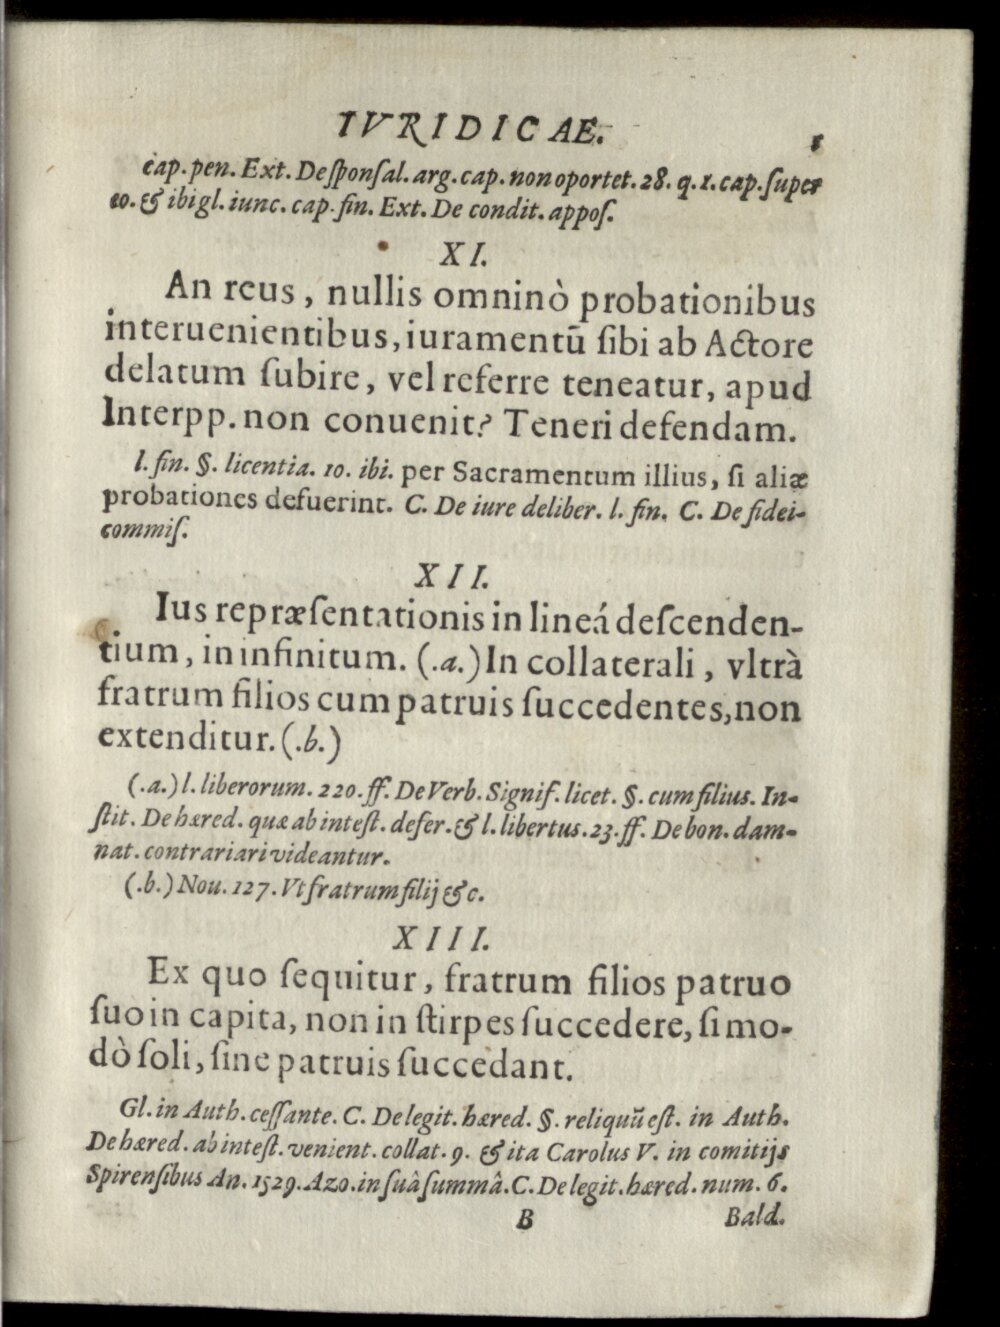 IVRIDICAE.
cap. pen. Ext. Desponsal. arg. cap. non oportet. 28. q. 1. cap. super
10. & ibi gl. iunc. cap. fin. Ext. De condit. appos.
XI.
An reus, nullis omninò probationibus
interuenientibus, iuramentū sibi ab Actore
delatum subire, vel referre teneatur, apud
Interpp. non conuenit? Teneri defendam.
l. fin. §. licentia. 10. ibi. per Sacramentum illius, si aliæ
probationes defuerint. C. De iure deliber. l. fin. C. De fidei-
commis.
XII.
Ius repræsentationis in lineá descenden-
tium, in infinitum. (.a.) In collaterali, vltrà
fratrum filios cum patruis succedentes, non
extenditur. (.b.)
(.a.) l. liberorum. 220. ff. De Verb. Signif. licet. §. cum filius. In-
stit. De hæred. quæ ab intest. defer. & l. libertus. 23. ff. De bon. dam-
nat. contrariari videantur.
(.b.) Nou. 127. Vt fratrum filij &c.
XIII.
Ex quo sequitur, fratrum filios patruo
suo in capita, non in stirpes succedere, si mo-
dò soli, sine patruis succedant.
Gl. in Auth. cessante. C. De legit. hæred. §. reliquū est. in Auth.
De hæred. ab intest. venient. collat. 9. & ita Carolus V. in comitijs
Spirensibus An. 1529. Azo. in suâ summâ. C. De legit. hæred. num. 6.
B Bald.